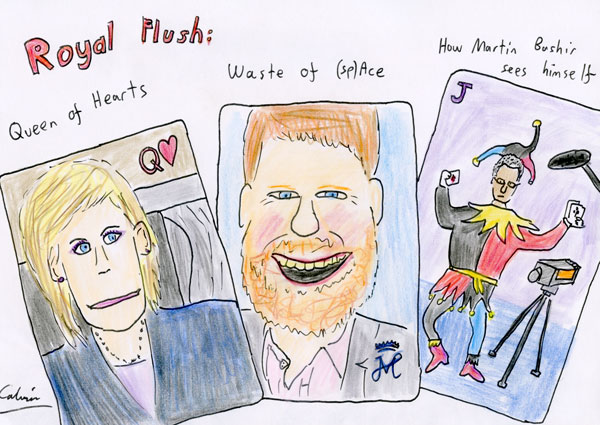 Royal Flush:
Queen of Hearts
Waste of (sp)Ace
How Martin Bashir
sees himself
Q
J
Calvin